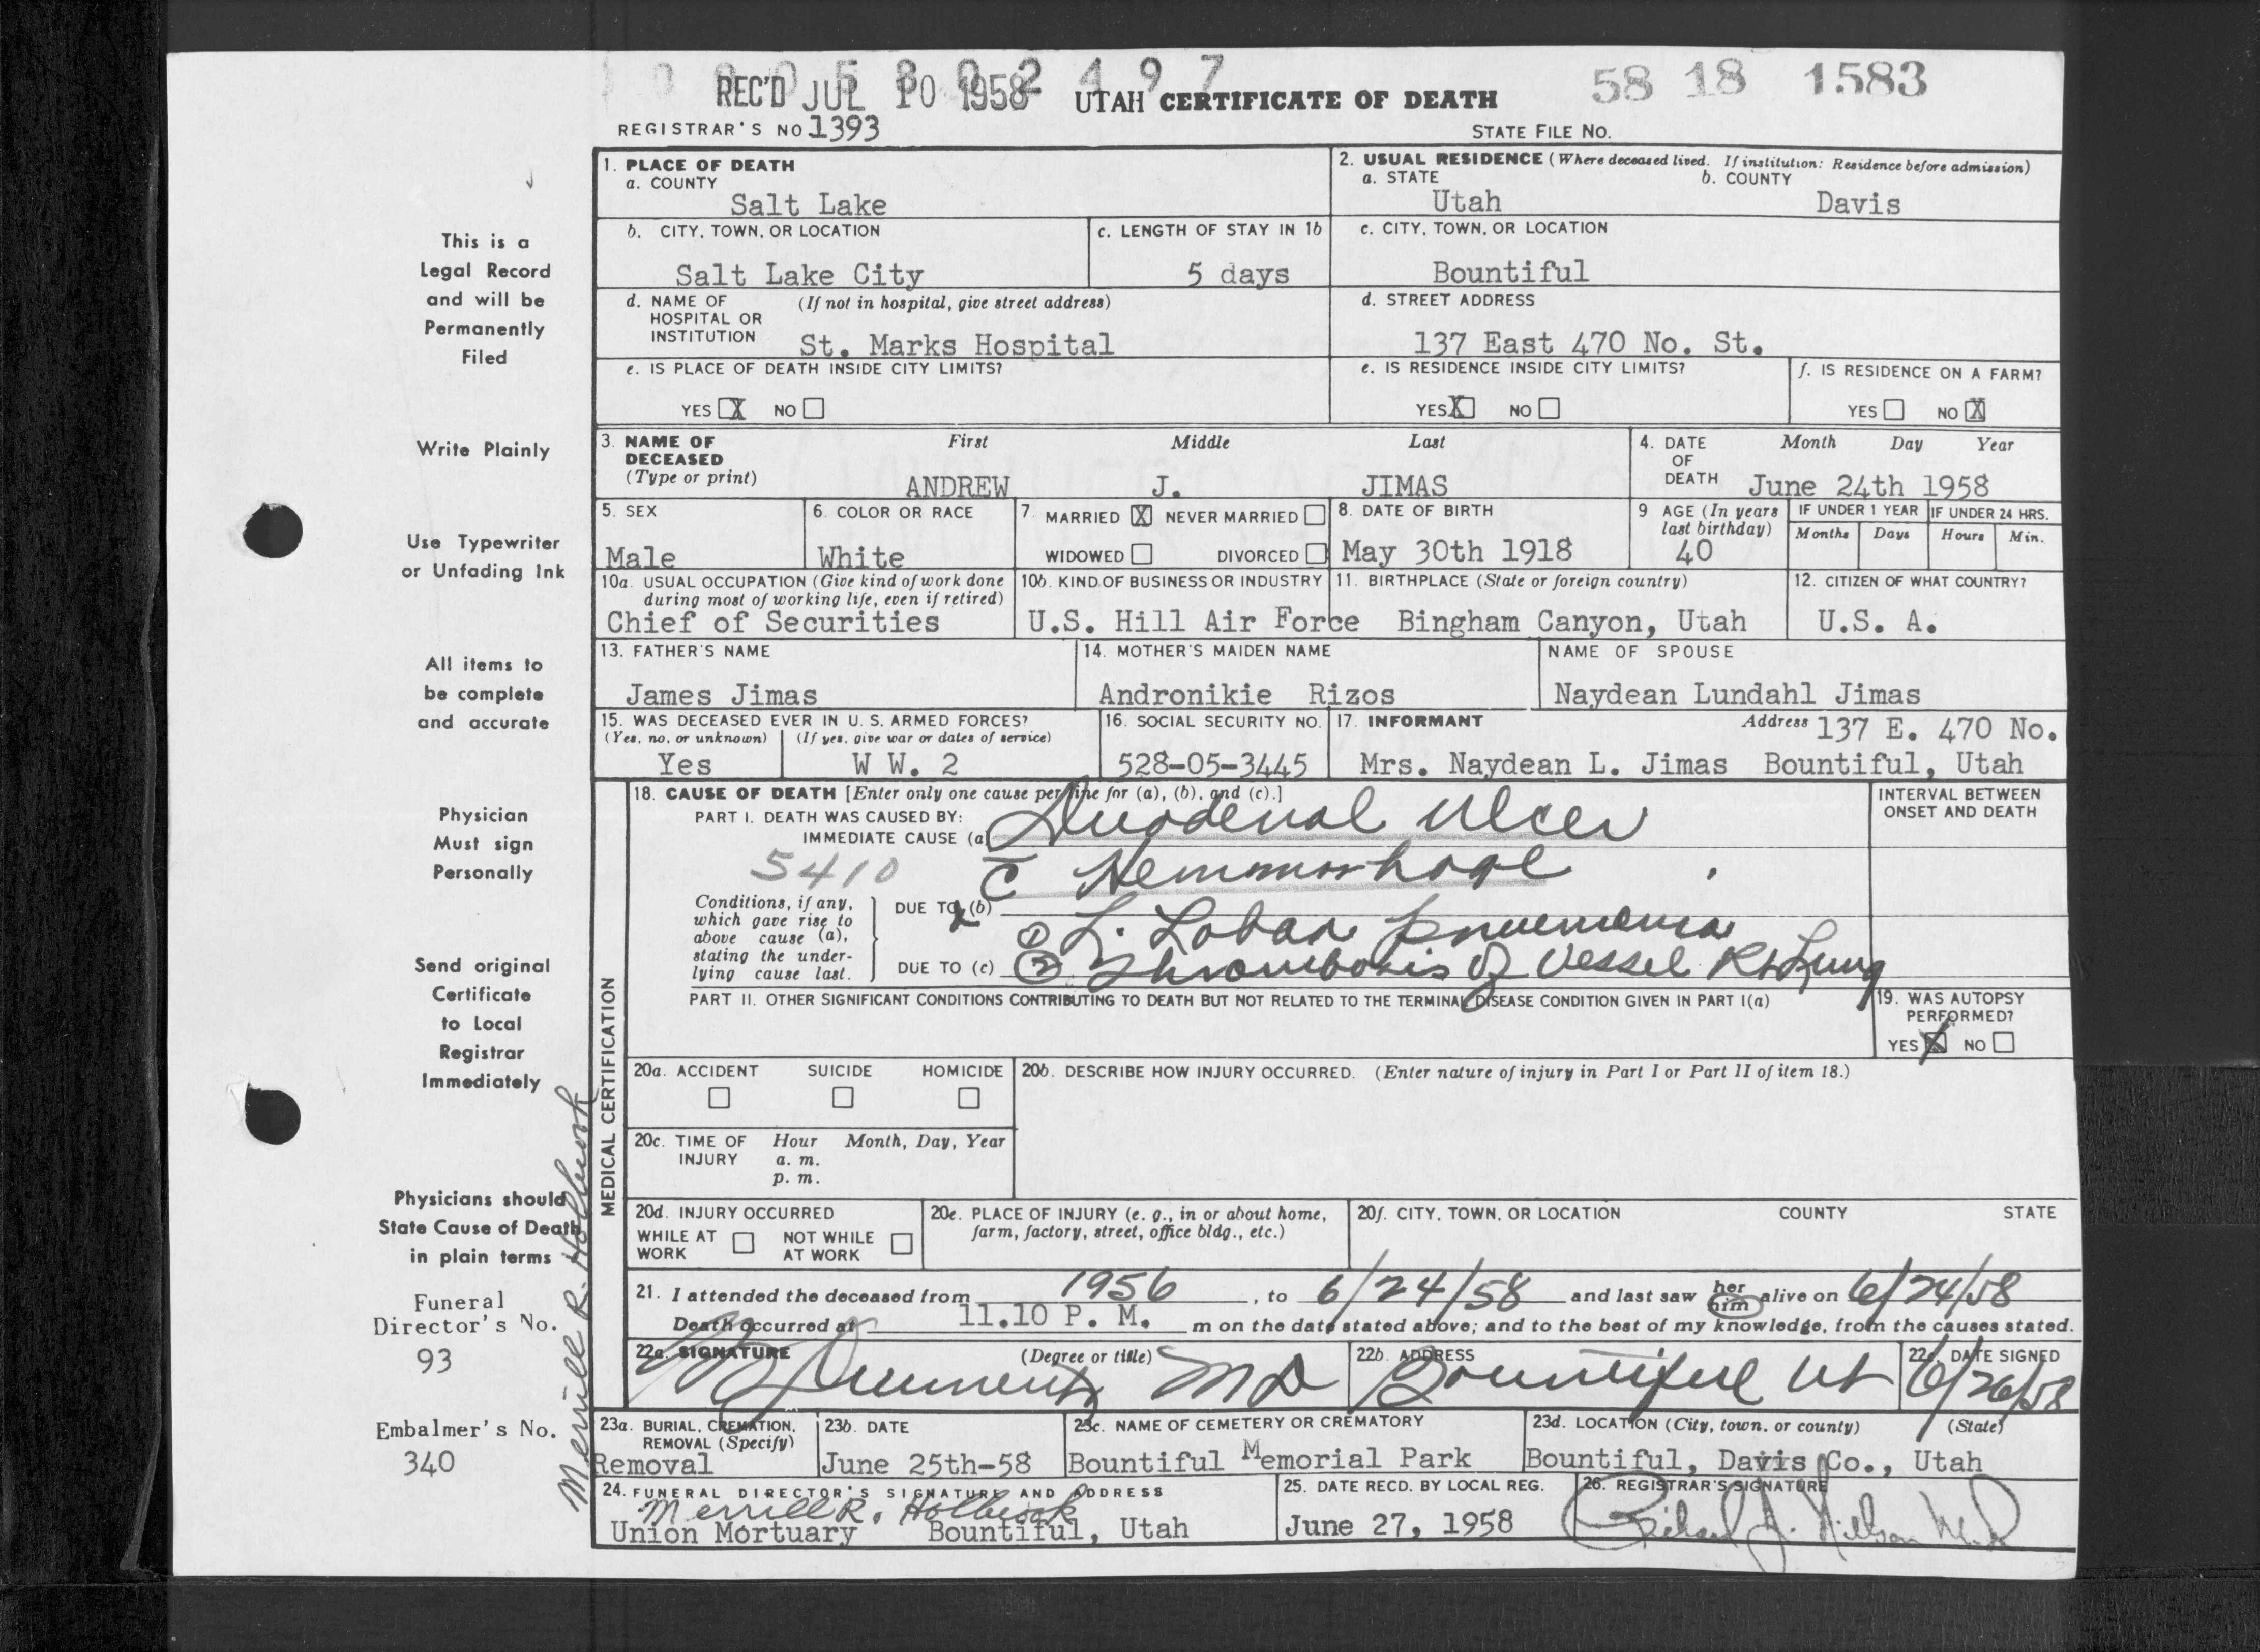 0 0 0 5 8 0 2 4 9 7
REC'D JUL 10 1958 UTAH CERTIFICATE OF DEATH 58 18 1583
REGISTRAR'S NO 1393 STATE FILE NO.
1. PLACE OF DEATH
a. COUNTY
Salt Lake
2. USUAL RESIDENCE (Where deceased lived. If institution: Residence before admission)
a. STATE b. COUNTY
Utah Davis
b. CITY, TOWN, OR LOCATION
Salt Lake City
c. LENGTH OF STAY IN 1b
5 days
c. CITY, TOWN, OR LOCATION
Bountiful
d. NAME OF (If not in hospital, give street address)
HOSPITAL OR
INSTITUTION St. Marks Hospital
d. STREET ADDRESS
137 East 470 No. St.
e. IS PLACE OF DEATH INSIDE CITY LIMITS?
YES X NO
e. IS RESIDENCE INSIDE CITY LIMITS?
YES X NO
f. IS RESIDENCE ON A FARM?
YES NO X
3. NAME OF First Middle Last
DECEASED
(Type or print) ANDREW J. JIMAS
4. DATE Month Day Year
OF
DEATH June 24th 1958
5. SEX
Male
6. COLOR OR RACE
White
7. MARRIED X NEVER MARRIED
WIDOWED DIVORCED
8. DATE OF BIRTH
May 30th 1918
9 AGE (In years
last birthday)
40
IF UNDER 1 YEAR IF UNDER 24 HRS.
Months Days Hours Min.
10a. USUAL OCCUPATION (Give kind of work done
during most of working life, even if retired)
Chief of Securities
10b. KIND OF BUSINESS OR INDUSTRY
U.S. Hill Air Force
11. BIRTHPLACE (State or foreign country)
Bingham Canyon, Utah
12. CITIZEN OF WHAT COUNTRY?
U.S. A.
13. FATHER'S NAME
James Jimas
14. MOTHER'S MAIDEN NAME
Andronikie Rizos
NAME OF SPOUSE
Naydean Lundahl Jimas
15. WAS DECEASED EVER IN U.S. ARMED FORCES?
(Yes, no, or unknown) (If yes, give war or dates of service)
Yes W W. 2
16. SOCIAL SECURITY NO.
528-05-3445
17. INFORMANT Address 137 E. 470 No.
Mrs. Naydean L. Jimas Bountiful, Utah
MEDICAL CERTIFICATION
18. CAUSE OF DEATH [Enter only one cause per line for (a), (b), and (c).]
PART I. DEATH WAS CAUSED BY:
IMMEDIATE CAUSE (a) Duodenal Ulcer
5410 c̄ Hemmorhage
Conditions, if any,
which gave rise to
above cause (a),
stating the under-
lying cause last.
DUE TO (b)
① L. Lobar pneumonia
DUE TO (c) ② Thrombosis of Vessel Rt Lung
INTERVAL BETWEEN
ONSET AND DEATH
PART II. OTHER SIGNIFICANT CONDITIONS CONTRIBUTING TO DEATH BUT NOT RELATED TO THE TERMINAL DISEASE CONDITION GIVEN IN PART I(a)
19. WAS AUTOPSY
PERFORMED?
YES X NO
20a. ACCIDENT SUICIDE HOMICIDE
20b. DESCRIBE HOW INJURY OCCURRED. (Enter nature of injury in Part I or Part II of item 18.)
20c. TIME OF Hour Month, Day, Year
INJURY a. m.
p. m.
20d. INJURY OCCURRED
WHILE AT NOT WHILE
WORK AT WORK
20e. PLACE OF INJURY (e. g., in or about home,
farm, factory, street, office bldg., etc.)
20f. CITY, TOWN, OR LOCATION COUNTY STATE
21. I attended the deceased from 1956, to 6/24/58 and last saw her him alive on 6/24/58
Death occurred at 11.10 P. M. m on the date stated above; and to the best of my knowledge, from the causes stated.
22a. SIGNATURE (Degree or title)
MD
22b. ADDRESS
Bountiful Ut
22c. DATE SIGNED
6/26/58
23a. BURIAL, CREMATION,
REMOVAL (Specify)
Removal
23b. DATE
June 25th-58
23c. NAME OF CEMETERY OR CREMATORY
Bountiful Memorial Park
23d. LOCATION (City, town, or county) (State)
Bountiful, Davis Co., Utah
24. FUNERAL DIRECTOR'S SIGNATURE AND ADDRESS
Merrill R. Holbrook
Union Mortuary Bountiful, Utah
25. DATE RECD. BY LOCAL REG.
June 27, 1958
26. REGISTRAR'S SIGNATURE
Richard J. Nelson M.D
This is a
Legal Record
and will be
Permanently
Filed
Write Plainly
Use Typewriter
or Unfading Ink
All items to
be complete
and accurate
Physician
Must sign
Personally
Send original
Certificate
to Local
Registrar
Immediately
Physicians should
State Cause of Death
in plain terms
Funeral
Director's No.
93
Embalmer's No.
340
Merrill R. Holbrook